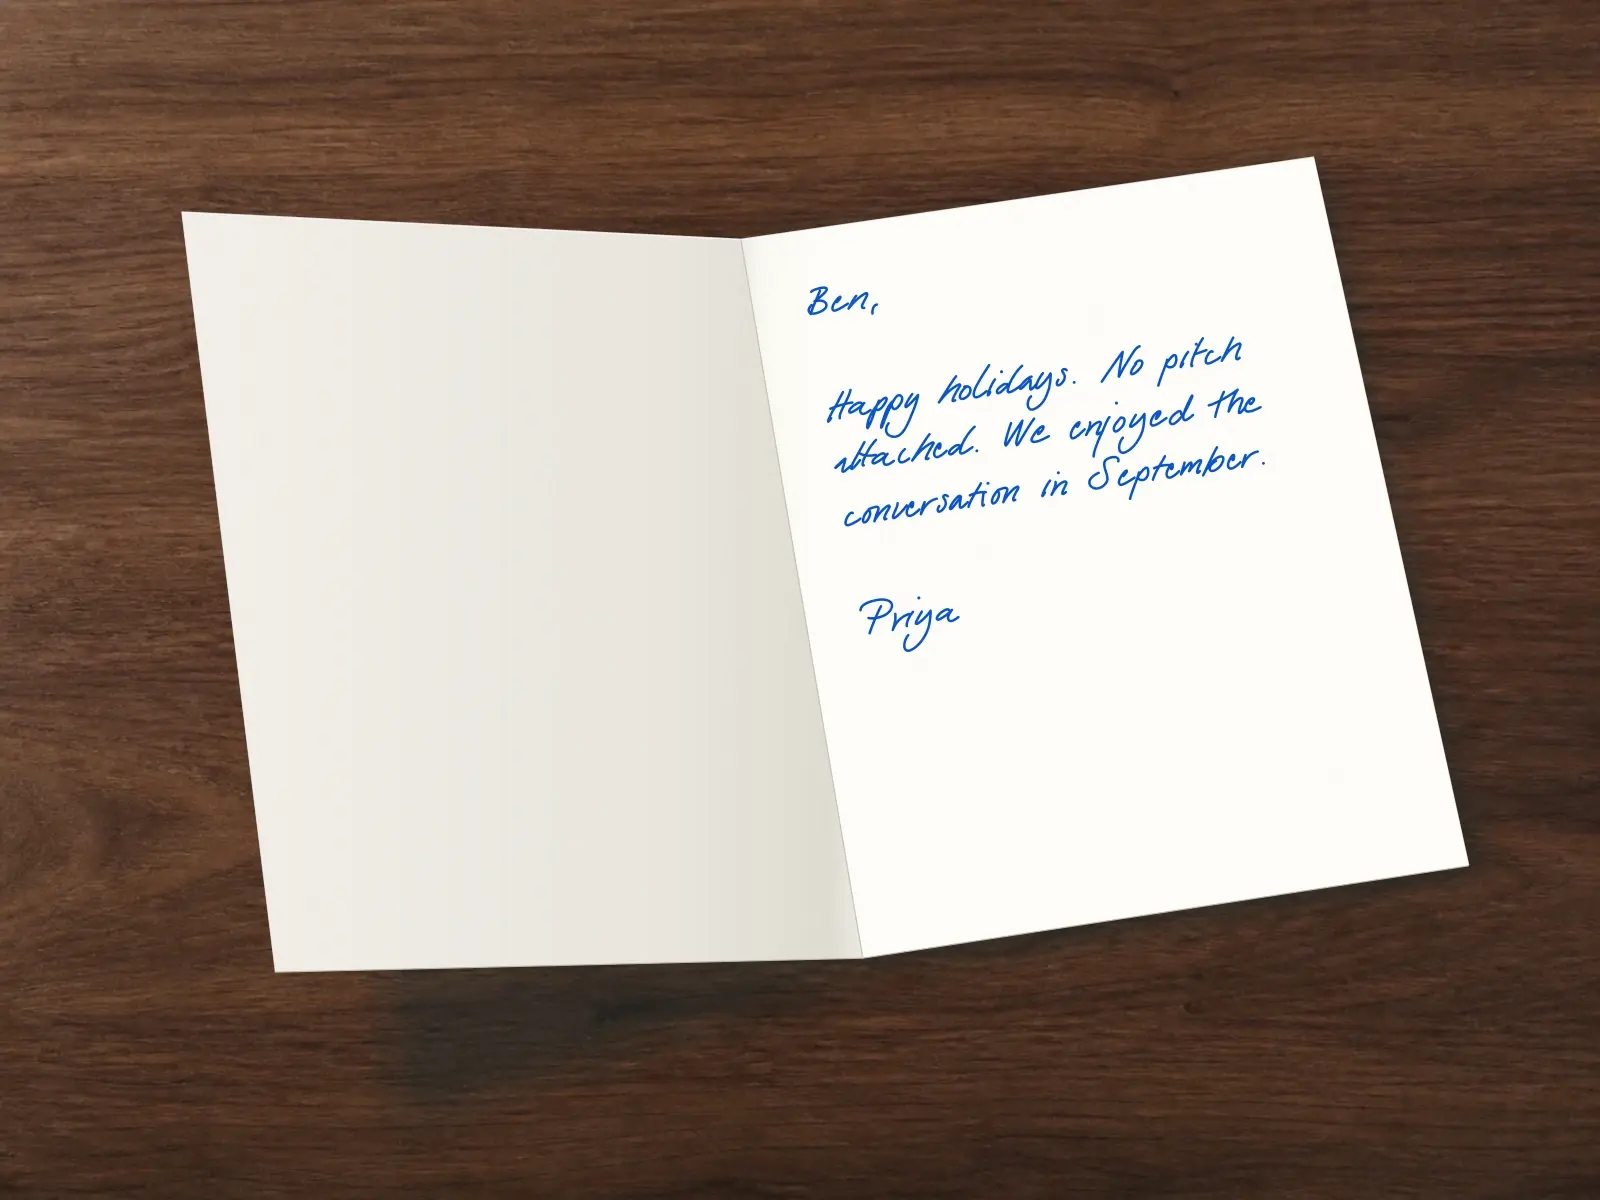 Ben,
Happy holidays. No pitch
attached. We enjoyed the
conversation in September.
Priya